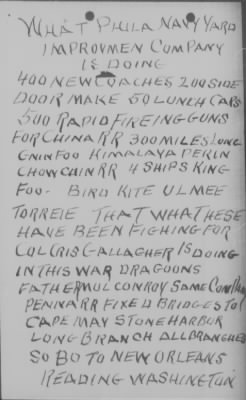 WHAT PHILA NAVY YARD
IMPROVMEN COMPANY
IS DOING
400 NEW COACHES 200 SIDE
DOOR MAKE 50 LUNCH CARS
500 RAPID FIREING GUNS
FOR CHINA RR 300 MILES LONG
CHIN FOO KIMALAYA PERIN
CHOW CAIN RR 4 SHIPS KING
FOO - BIRD KITE ULMEE
TORREIE THAT WHAT HESE
HAVE BEEN FIGHING FOR
COL CRIS GALLAGHER IS DOING
IN THIS WAR DRAGOONS
FATHER MUL CONROY SAME
PENINA RR FIXED BRIDGES TO
CAPE MAY STONE HARBOR
LONG BRANCH ALL BRANCHES
SO BO TO NEW ORLEANS
READING WASHINGTON